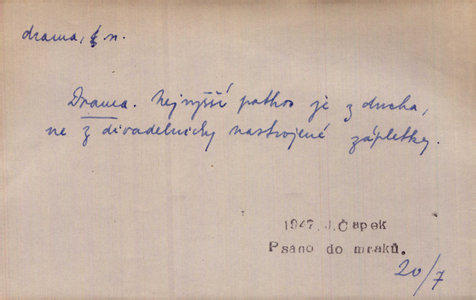 drama, n.
Drama. Nejvyšší pathos je z ducha,
ne z divadelnicky nastrojené zápletky.
1947, J.Čapek
Psáno do mraků.
20/7